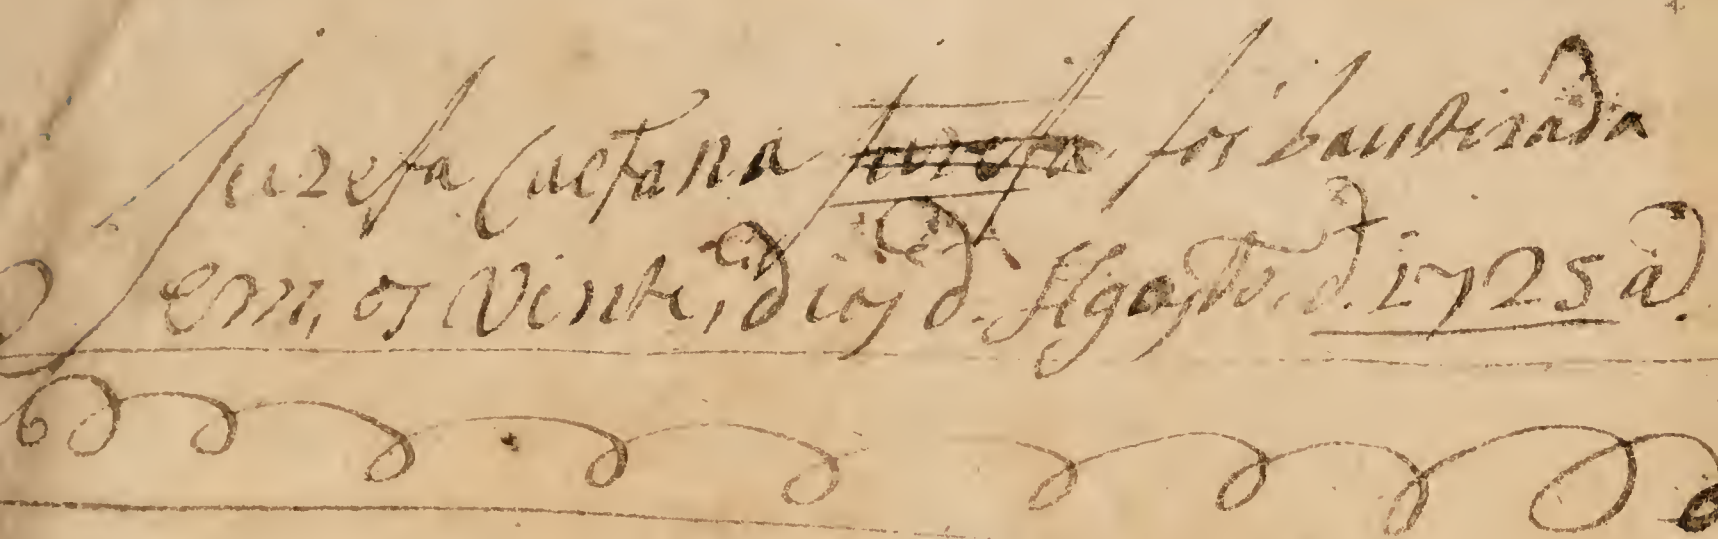 Juzefa Caetana foi bautizada
em, os Vinte, dias d. Agosto. d. 1725 ad.